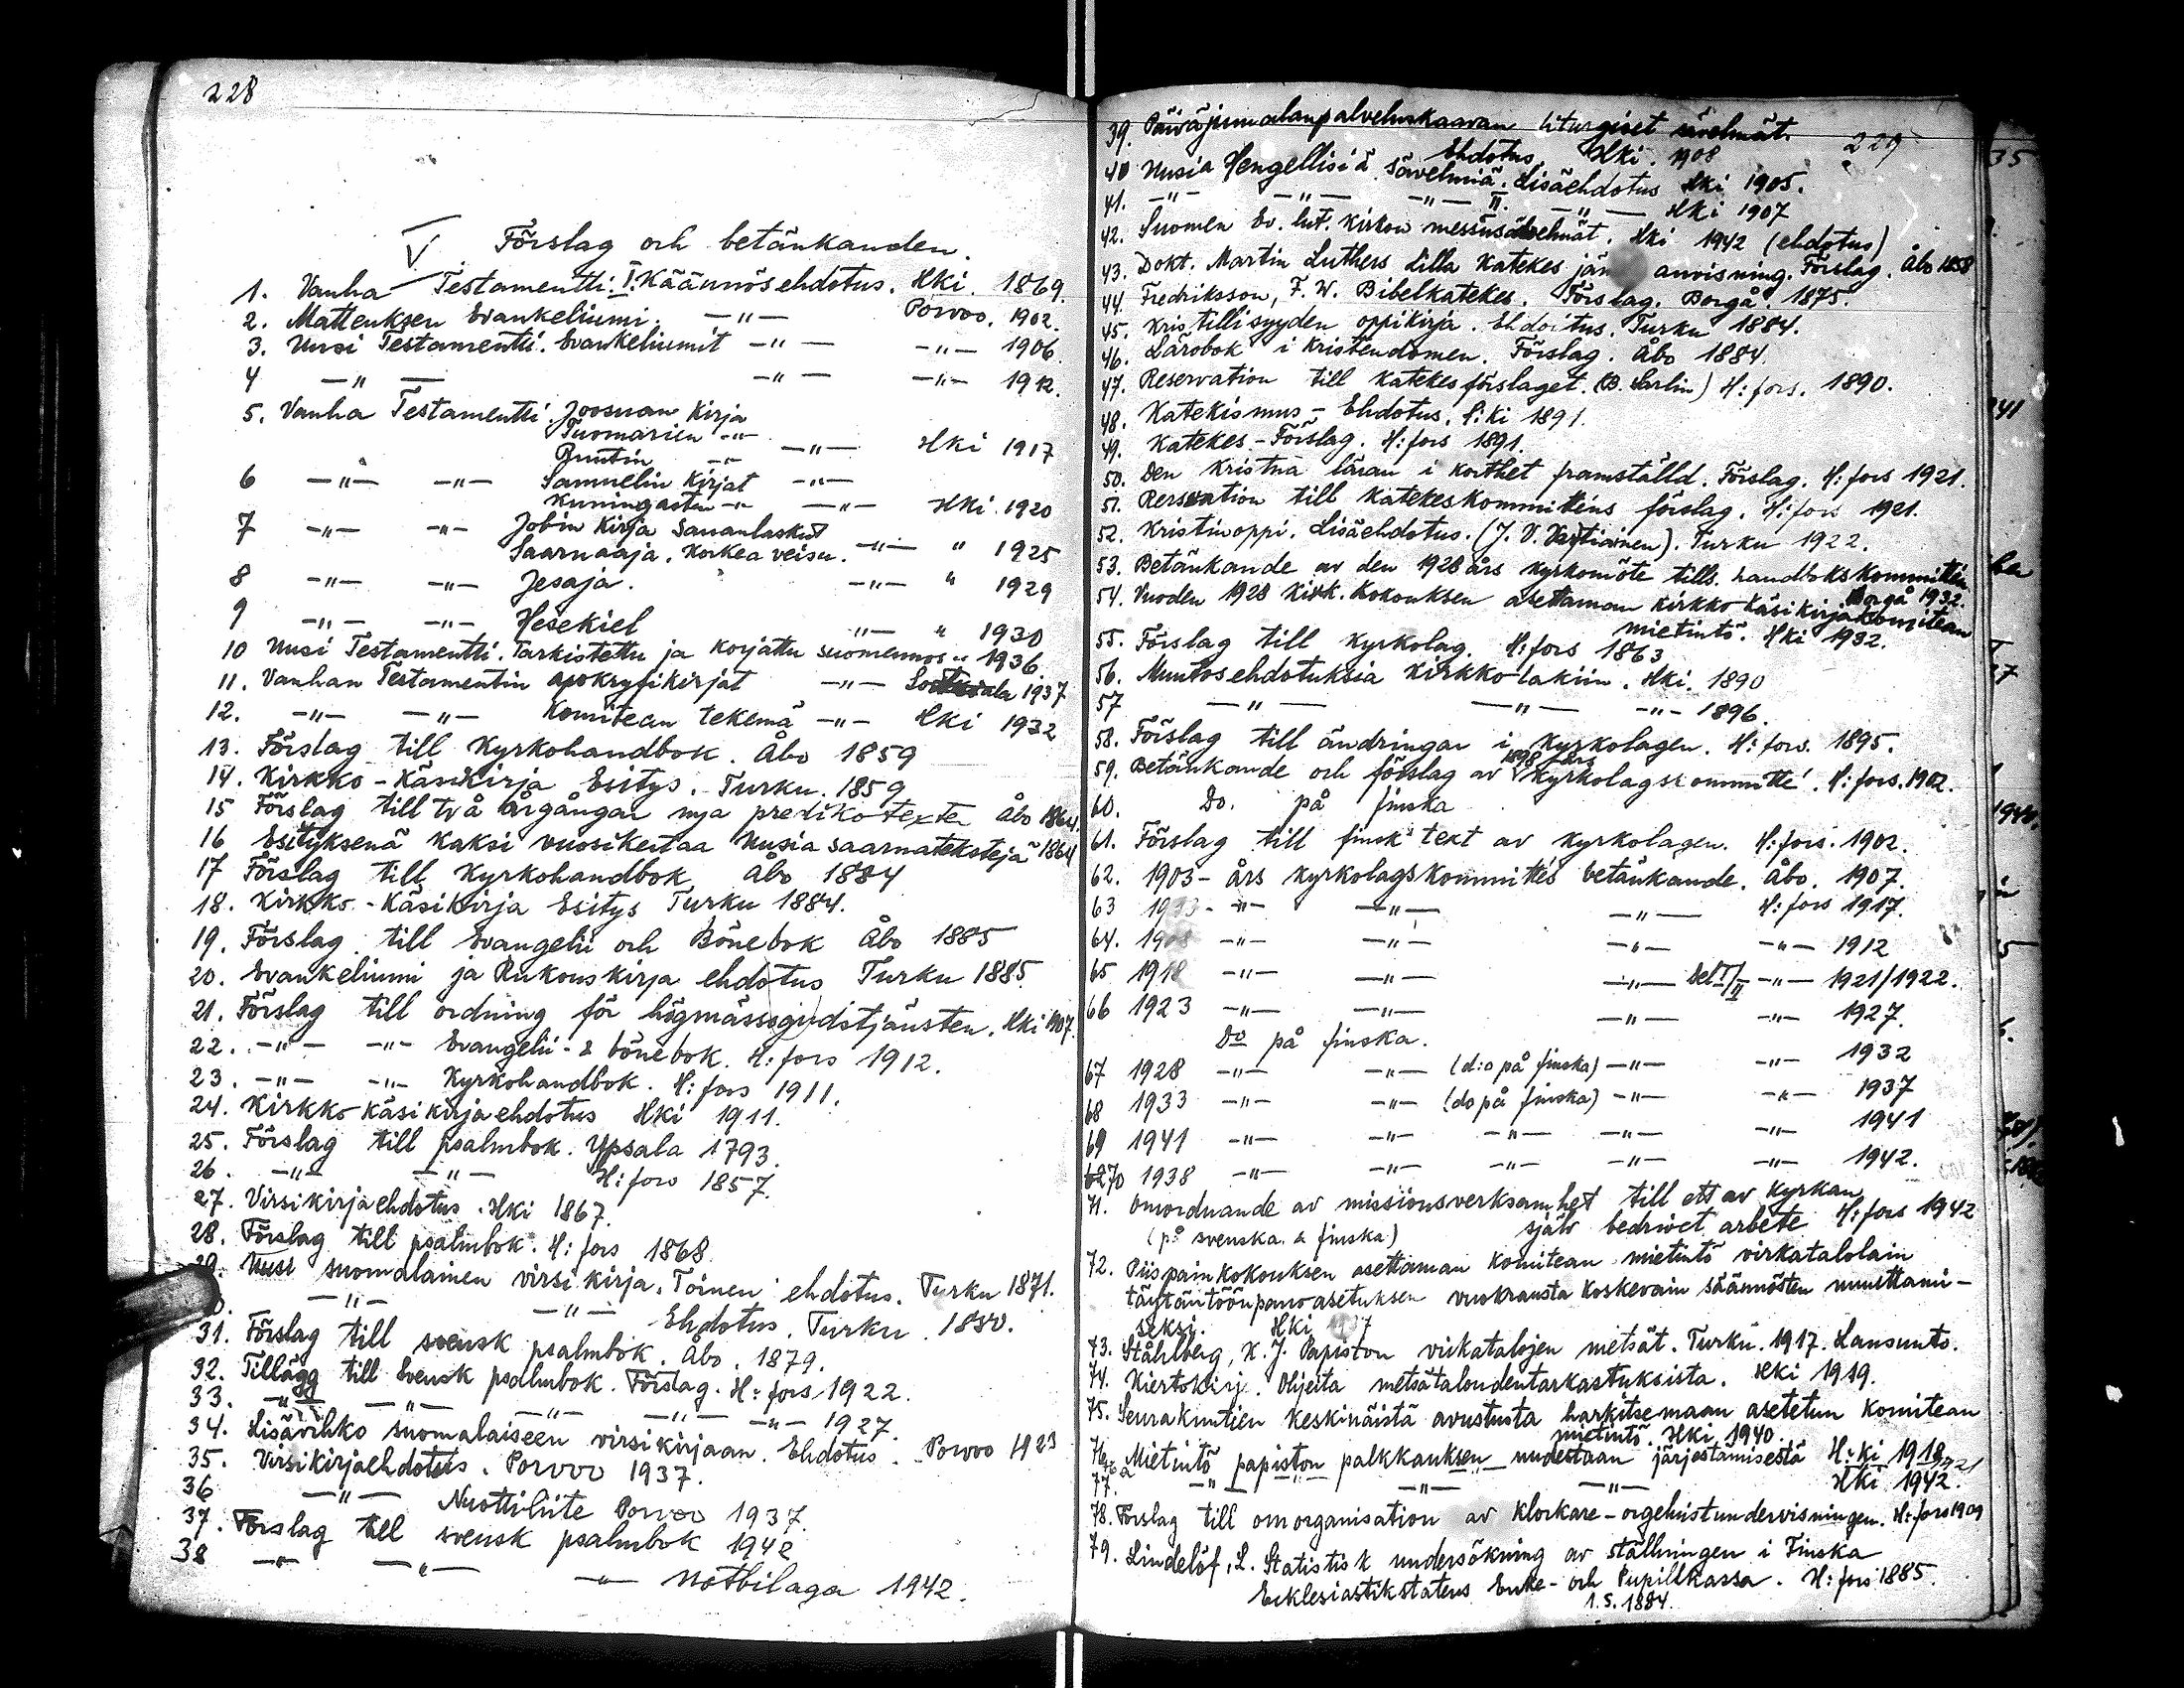 228
V Förslag och betänkanden.
1. Vanha Testamentti. I. Käännösehdotus. Hki. 1869.
2. Matteuksen Evankeliumi. —"— Porvoo. 1902.
3. Uusi Testamentti. Evankeliumit —"— —"— 1906.
4 —"— —"— —"— 1912.
5. Vanha Testamentti. Joosuan Kirja
Tuomarien —"—
Ruutin —"— —"— Hki 1917
6 —"— —"— Samuelin Kirjat —"—
Kuningasten —"— —"— Hki. 1920
7 —"— —"— Jobin Kirja Sananlaskut
Saarnaaja, Korkea veisu. —"— " 1925
8 —"— —"— Jesaja. —"— " 1929
9 —"— —"— Hesekiel "— " 1930
10 Uusi Testamentti. Tarkistettu ja korjattu suomennos " 1936.
11. Vanhan Testamentin apokryfikirjat —"— 1937
12. —"— —"— Komitean tekemä —"— Hki 1932
13. Förslag till Kyrkohandbok. Åbo 1859
14. Kirkko-Käsikirja Esitys. Turku. 1859
15 Förslag till två årgångar nya predikotexter Åbo 1864.
16 Esityksenä Kaksi vuosikertaa Uusia saarnatekstejä " 1864
17 Förslag till Kyrkohandbok Åbo 1884
18. Kirkko-Käsikirja Esitys Turku 1884.
19. Förslag till Evangelii och Bönebok Åbo 1885
20. Evankeliumi ja Rukouskirja ehdotus Turku 1885
21. Förslag till ordning för högmässogudstjänsten. Hki 1907.
22. —"— —"— Evangelii- & bönebok. H:fors 1912.
23. —"— —"— Kyrkohandbok. H:fors 1911.
24. Kirkko Käsikirjaehdotus Hki 1911.
25. Förslag till psalmbok. Upsala 1793.
26. —"— —"— H:fors 1857.
27. Virsikirjaehdotus. Hki 1867.
28. Förslag till psalmbok. H:fors 1868.
29. Uusi suomalainen virsikirja. Toinen ehdotus. Turku 1871.
0. —"— —"— Ehdotus. Turku. 1880.
31. Förslag till svensk psalmbok. Åbo. 1879.
32. Tillägg till Svensk psalmbok. Förslag. H:fors 1922.
33. —"— —"— —"— —"— —"— 1927.
34. Lisävihko suomalaiseen virsikirjaan. Ehdotus. Porvoo 1923
35. Virsikirjaehdotus. Porvoo 1937.
36 —"— Nuottiliite Porvoo 1937.
37. Förslag till svensk psalmbok 1942
38 —"— —"— —"— Notbilaga 1942.
39. Päiväjumalanpalveluskaavan liturgiset sävelmät. 229
Ehdotus. Hki. 1908
40 Uusia Hengellisiä Sävelmiä. Lisäehdotus Hki 1905.
41. —"— —"— —"— II. —"— Hki 1907
42. Suomen Ev. lut. Kirkon messusävelmät. Hki 1942 (ehdotus)
43. Dokt. Martin Luthers Lilla Katekes anvisning. Förslag. Åbo 1858
44. Fredriksson, F. W. Bibelkatekes. Förslag. Borgå. 1875.
45. Kristillisyyden oppikirja. Ehdoitus. Turku 1884.
46. Lärobok i Kristendomen. Förslag. Åbo 1884.
47. Reservation till Katekesförslaget. (B. Sarlin) H:fors. 1890.
48. Katekismus-Ehdotus. H:ki 1891.
49. Katekes-Förslag. H:fors 1891.
50. Den Kristna läran i korthet framställd. Förslag. H:fors 1921.
51. Reservation till Kateketskommitténs förslag. H:fors 1921.
52. Kristinoppi. Lisäehdotus. (J. V. Vartiainen). Turku 1922.
53. Betänkande av den 1928 års kyrkomöte tills. handbokskommittén
Borgå 1932.
54. Vuoden 1928 Kirk. Kokouksen asettaman Kirkko Käsikirjakomitean
mietintö. Hki 1932.
55. Förslag till Kyrkolag. H:fors 1863
56. Muutosehdotuksia Kirkko lakiin. Hki. 1890
57 —"— —"— —"— 1896.
58. Förslag till ändringar i Kyrkolagen. H:fors. 1895.
59. Betänkande och förslag av 1898 års Kyrkolagskommitté. H:fors. 1902.
60. Do. på finska
61. Förslag till finsk text av Kyrkolagen. H:fors. 1902.
62. 1903-års Kyrkolagskommittés betänkande. Åbo. 1907.
63 —"— —"— —"— H:fors 1917.
64. 1908 —"— —"— —"— —"— 1912
65 1918 —"— —"— —"— Del I/II —"— 1921/1922.
66 1923 —"— —"— —"— —"— 1927.
Do på finska.
67 1928 —"— —"— (d:o på finska) —"— —"— 1932
68 1933 —"— —"— (do på finska) —"— —"— 1937
69 1941 —"— —"— —"— —"— —"— 1941
70 1938 —"— —"— —"— —"— —"— 1942.
71. Omordnande av missionsverksamhet till ett av Kyrkan
(på svenska & finska) själv bedrivet arbete H:fors 1942
72. Piispainkokouksen asettaman Komitean mietintö virkatalolain
täytäntöönpanoasetuksen vuokrausta koskevain säännösten muuttami-
seksi. Hki
73. Ståhlberg, K. J. Papiston virkatalojen metsät. Turku. 1917. Lausunto.
74. Kiertokirj. Ohjeita metsätaloudentarkastuksista. Hki 1919.
75. Seurakuntien keskinäistä avustusta harkitsemaan asetetun Komitean
mietintö. Hki 1940.
76 Mietintö papiston palkkauksen uudestaan järjestämisestä H:ki 1918, 1921
77. —"— —"— —"— —"— Hki 1942.
78. Förslag till omorganisation av klockare-orgelnistundervisningen. H:fors 1909
79. Lindelöf, L. Statistisk undersökning av ställningen i Finska
Ecklesiastikstatens Enke- och Pupillkassa. H:fors 1885.
1.5.1884.